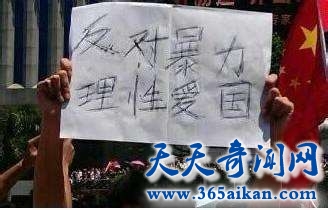 反对暴力
理性爱国
天天奇闻网
www.365aikan.com